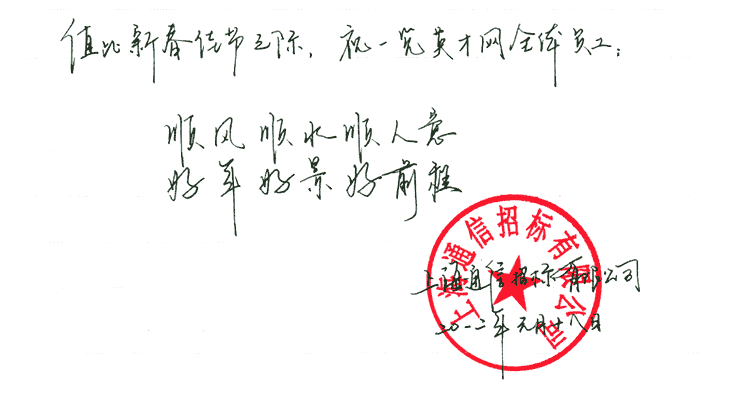 值此新春佳节之际，祝一览英才网全体员工：
顺风顺水顺人意
好年好景好前程
上海通信招标有限公司
上海通信招标有限公司
二〇一二年元月十八日